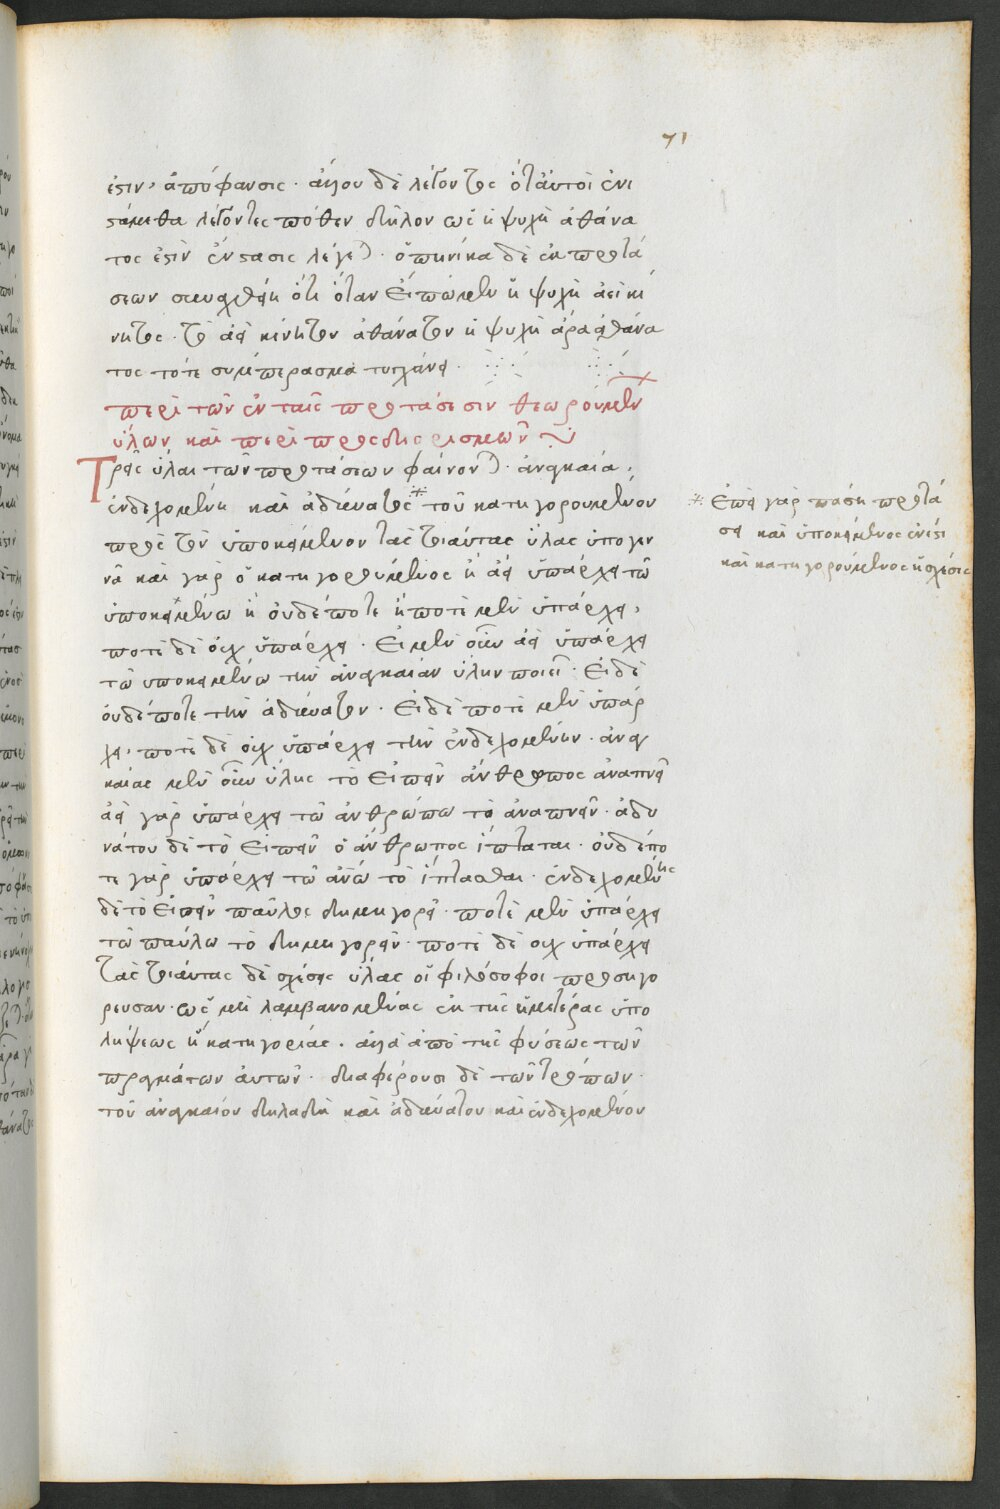 71
ἐστιν, ἀπόφανσις· ἄλλου δὲ λέγοντος ὅτἀυτοὶ ἐνι
στάμεθα λέγοντες πόθεν δῆλον ὡς ἡ ψυχὴ ἀθάνα
τος ἐστὶν ἔνστασις λέγεται· ὁπηνίκα δὲ ἐκ προτά
σεων συναχθῆ ὅτι ὅταν εἴπωμεν ἡ ψυχὴ ἀεὶ κι
νητος· τὸ ἀει κίνητον ἀθάνατον ἡ ψυχὴ ἄρα ἀθάνα
τος τότε συμπέρασμα τυγχάνει·
περὶ τῶν ἐν ταῖς προτάσεσιν θεωρουμένων
ὑλῶν καὶ περὶ προσδιορισμῶν
Τρεῖς ὗλαι τῶν προτάσεων φαίνονται· ἀναγκαία,
ἐνδεχομένη καὶ ἀδύνατος· τοῦ κατηγορουμένου
πρὸς τὸν ὑποκείμενον τὰς τοιαύτας ὕλας ὑπογεν
νᾶ καὶ γὰρ ὁ κατηγορούμενος ἢ ἀεὶ ὑπάρχει τῶ
ὑποκειμένω ἢ οὐδέποτε ἢ ποτὲ μὲν ὑπάρχει,
ποτὲ δὲ οὐχ ὑπάρχει· Εἰ μὲν οὖν ἀεὶ ὑπάρχει
τῶ υποκειμένω τὴν ἀναγκαίαν ὕλην ποιεῖ· Εἰ δὲ
οὐδέποτε τὴν ἀδύνατον· Εἰ δὲ ποτὲ μὲν ὑπάρ
χει, ποτὲ δὲ οὐχ ὑπάρχει τὴν ἐνδεχομένην· ἀναγ
καίας μὲν οὖν ὕλης τὸ εἰπεῖν ἄνθρωπος ἀναπνεῖ
ἀεὶ γὰρ ὑπάρχει τῶ ἀνθρώπω τὸ ἀναπνεῖν· ἀδυ
νάτου δὲ τὸ εἰπεῖν ὁ ἄνθρωπος ἵπταται· οὐδέπο
τε γὰρ ὑπάρχει τῶ ἀνω τὸ ἵπτασθαι· ἐνδεχομένης
δὲ τὸ εἰπεῖν παῦλος δημηγορεῖ· ποτὲ μὲν ὑπάρχει
τῶ παύλω τὸ δημηγορεῖν· ποτὲ δὲ οὐχ ὑπάρχει
τὰς τοιαύτας δὲ σχέσεις ὕλας οἱ φιλόσοφοι προσηγό
ρευσαν· ὡς μὴ λαμβανομένας ἐκ τῆς ἡμετέρας ὑπο
λήψεως ἢ κατηγορίας· ἀλλὰ ἀπὸ τῆς φύσεως τῶν
πραγμάτων αὐτῶν· διαφέρουσι δὲ τῶν τρόπων·
τοῦ ἀναγκαίου δηλαδὴ καὶ ἀδυνάτου καὶ ἐνδεχομένου
Ἐπεὶ γὰρ πάση προτά
σει καὶ ὑποκείμενος ἐνέστι
καὶ κατηγορούμενος ἡ σχέσις